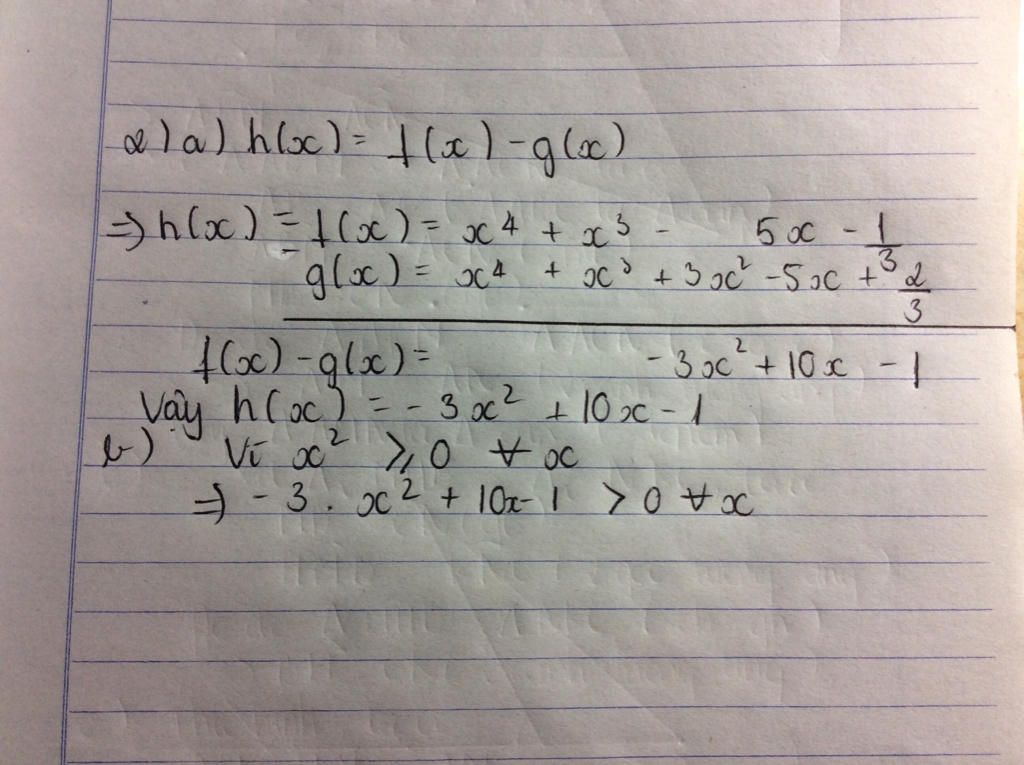 2) a) h(x) = f(x) - g(x)
⇒ h(x) = f(x) = x⁴ + x³ - 5x - 1/3
- g(x) = x⁴ + x³ + 3x² - 5x + 2/3
f(x) - g(x) = - 3x² + 10x - 1
Vậy h(x) = - 3x² + 10x - 1
b) Vì x² ⩾ 0 ∀ x
⇒ - 3 . x² + 10x - 1 > 0 ∀ x